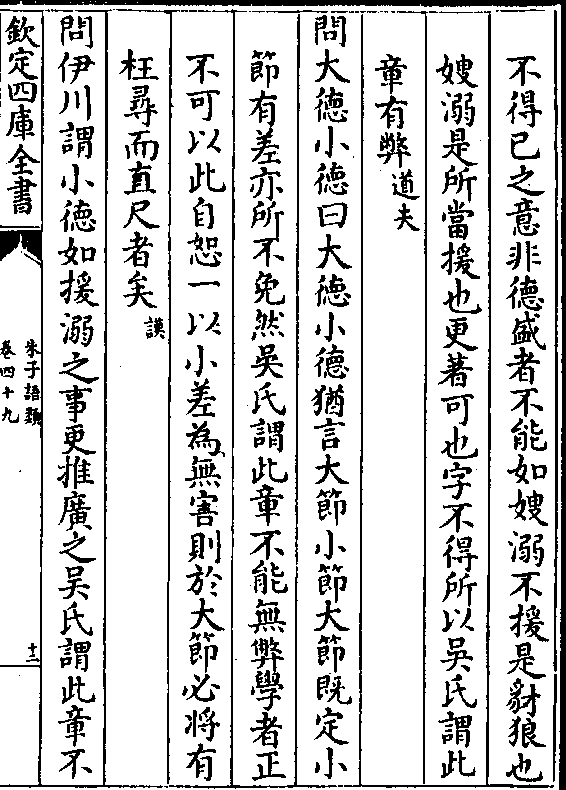 不得已之意非德盛者不能如嫂溺不援是豺狼也
嫂溺是所當援也更著可也字不得所以吳氏謂此
章有弊道夫
問大德小德曰大德小德猶言大節小節大節既定小
節有差亦所不免然吳氏謂此章不能無弊學者正
不可以此自恕一以小差為無害則於大節必將有
枉尋而直尺者矣謨
問伊川謂小德如援溺之事更推廣之吳氏謂此章不
欽定四庫全書
朱子語類
卷四十九
十二